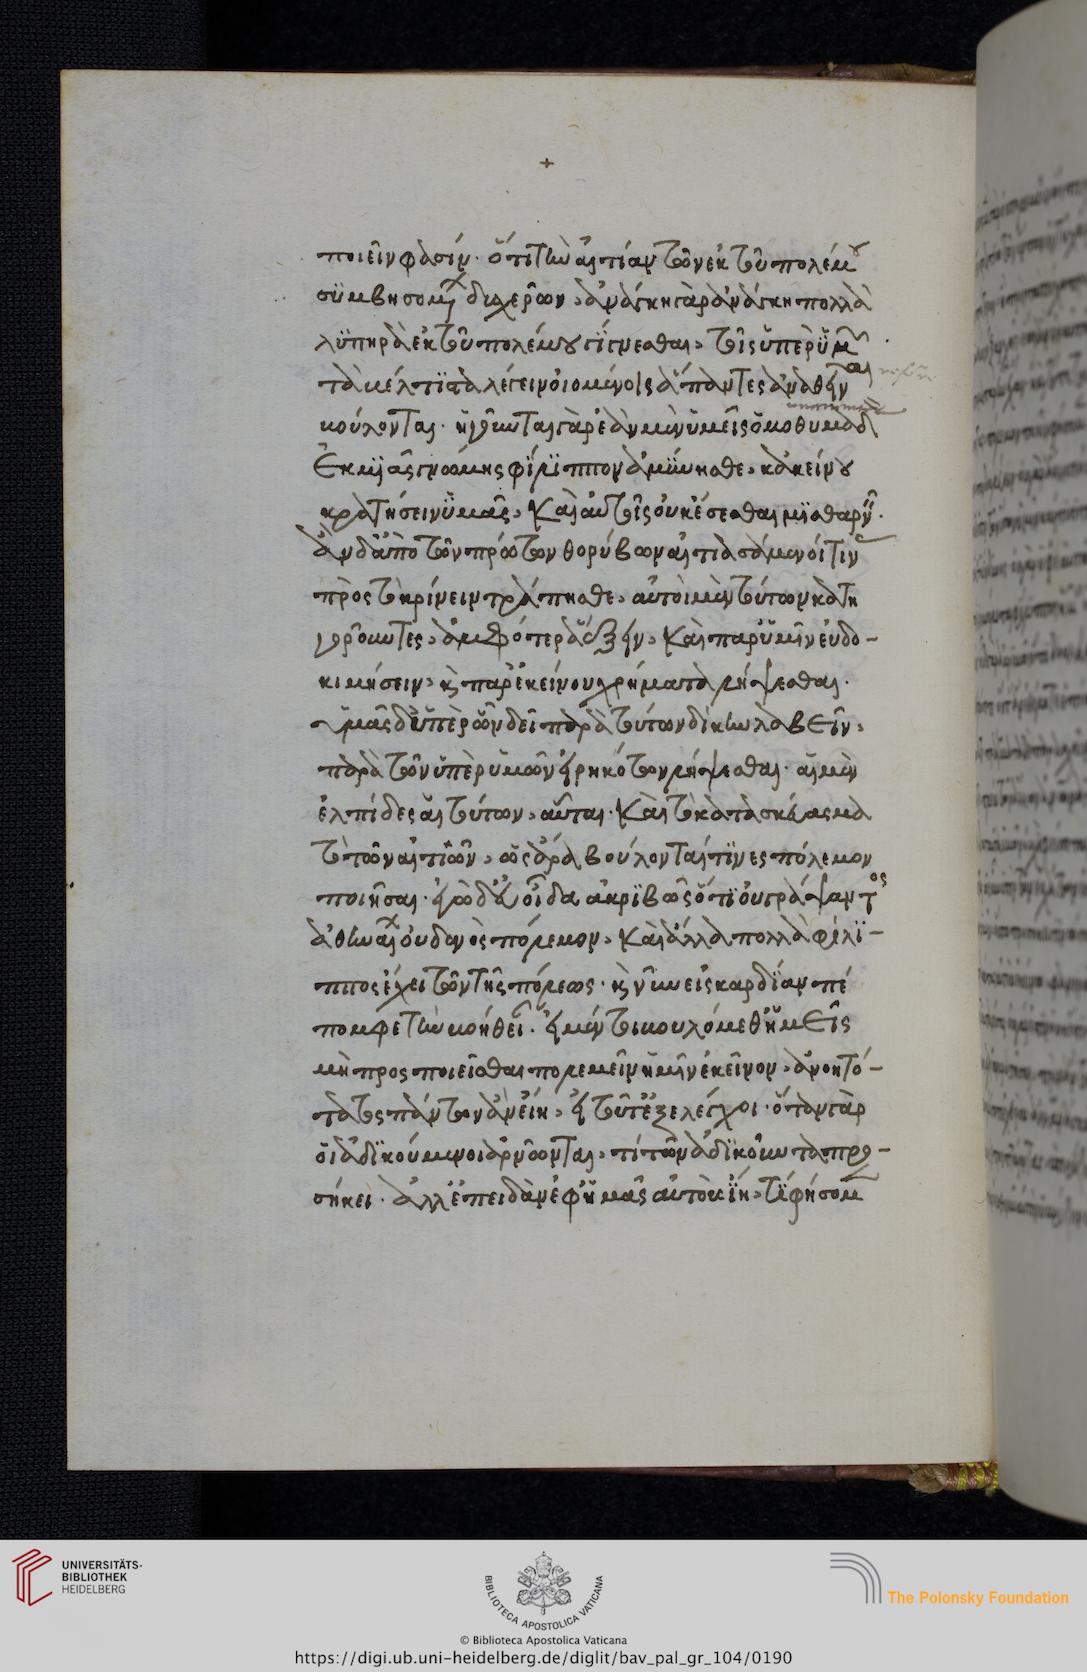 +
ποιεῖν φασίν. ὅτι τὴν αἰτίαν τῶν ἐκ τοῦ πολέμου
συμβησομένων δυχερῶν, ἀνάγκη γὰρ ἀνάγκη πολλὰ
λυπηρὰ ἐκ τοῦ πολέμου γίγνεσθαι, τοῖς ὑπὲρ ὑμῶν
τὰ βέλτιστα λέγειν οἰομένοις ἅπαντες ἀναθεῖναι
βούλονται. ἡγοῦνται γὰρ ἐὰν μὲν ὑμεῖς ὁμοθυμαδὸν
ἐκ μιᾶς γνώμης φίλιππον ἀμύνησθε, κἀκείνου
κρατήσειν ὑμᾶς, καὶ αὐτοῖς οὐκ ἔσεσθαι μισθαρνεῖν.
ἂν δ' ἀπὸ τῶν πρώτων θορύβων αἰτιασάμενοί τινας
πρὸς τὸ κρίνειν τράπησθε, αὐτοὶ μὲν τούτων κατη
γοροῦντες, ἀμφότερα ἕξειν, καὶ παρ' ὑμῖν εὐδο-
κιμήσειν, καὶ παρ' ἐκείνου χρήματα λήψεσθαι.
ὑμᾶς δ' ὑπὲρ ὧν δεῖ παρὰ τούτων δίκην λαβεῖν,
παρὰ τῶν ὑπὲρ ὑμῶν εἰρηκότων λήψεσθαι. αἱ μὲν
ἐλπίδες αἱ τούτων, αὗται. καὶ τὸ κατασκεύασμα
τὸ τῶν αἰτιῶν, ὡς ἄρα βούλονταί τινες πόλεμον
ποιῆσαι. ἐγὼ δ' οἶδα ἀκριβῶς ὅτι οὐ γράψαντος
ἀθηναίων οὐδενὸς πόλεμον, καὶ ἄλλα πολλὰ φίλι-
ππος ἔχει τῶν τῆς πόλεως. καὶ νῦν εἰς καρδίαν πέ
πομφε τὴν βοήθειαν. εἰ μέντοι βουλόμεθ' ἡμεῖς
μὴ προσποιεῖσθαι πολεμεῖν ἡμῖν ἐκεῖνον, ἀνοητό-
τατος πάντων ἂν εἴη, εἰ τοῦτ' ἐξελέγχοι. ὅταν γὰρ
οἱ ἀδικούμενοι ἀρνῶνται, τί τῶ ἀδικοῦντι προ-
σήκει. ἀλλ' ἐπειδὰν ἐφ' ἡμᾶς αὐτοὺς ἴῃ, τί φήσομεν
UNIVERSITÄTS-
BIBLIOTHEK
HEIDELBERG
BIBLIOTECA APOSTOLICA VATICANA
The Polonsky Foundation
© Biblioteca Apostolica Vaticana
https://digi.ub.uni-heidelberg.de/diglit/bav_pal_gr_104/0190